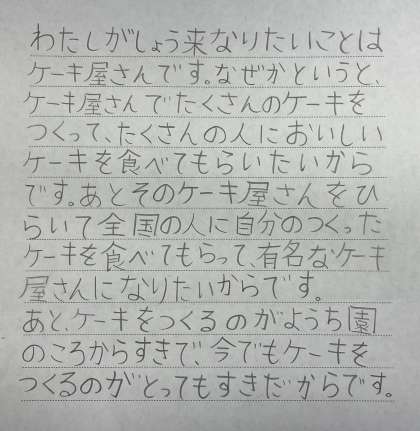 わたしがしょう来なりたいことは
ケーキ屋さんです。なぜかというと、
ケーキ屋さんでたくさんのケーキを
つくって、たくさんの人においしい
ケーキを食べてもらいたいから
です。あとそのケーキ屋さんをひ
らいて全国の人に自分のつくった
ケーキを食べてもらって、有名なケーキ
屋さんになりたいからです。
あと、ケーキをつくるのがようち園
のころからすきで、今でもケーキを
つくるのがとってもすきだからです。